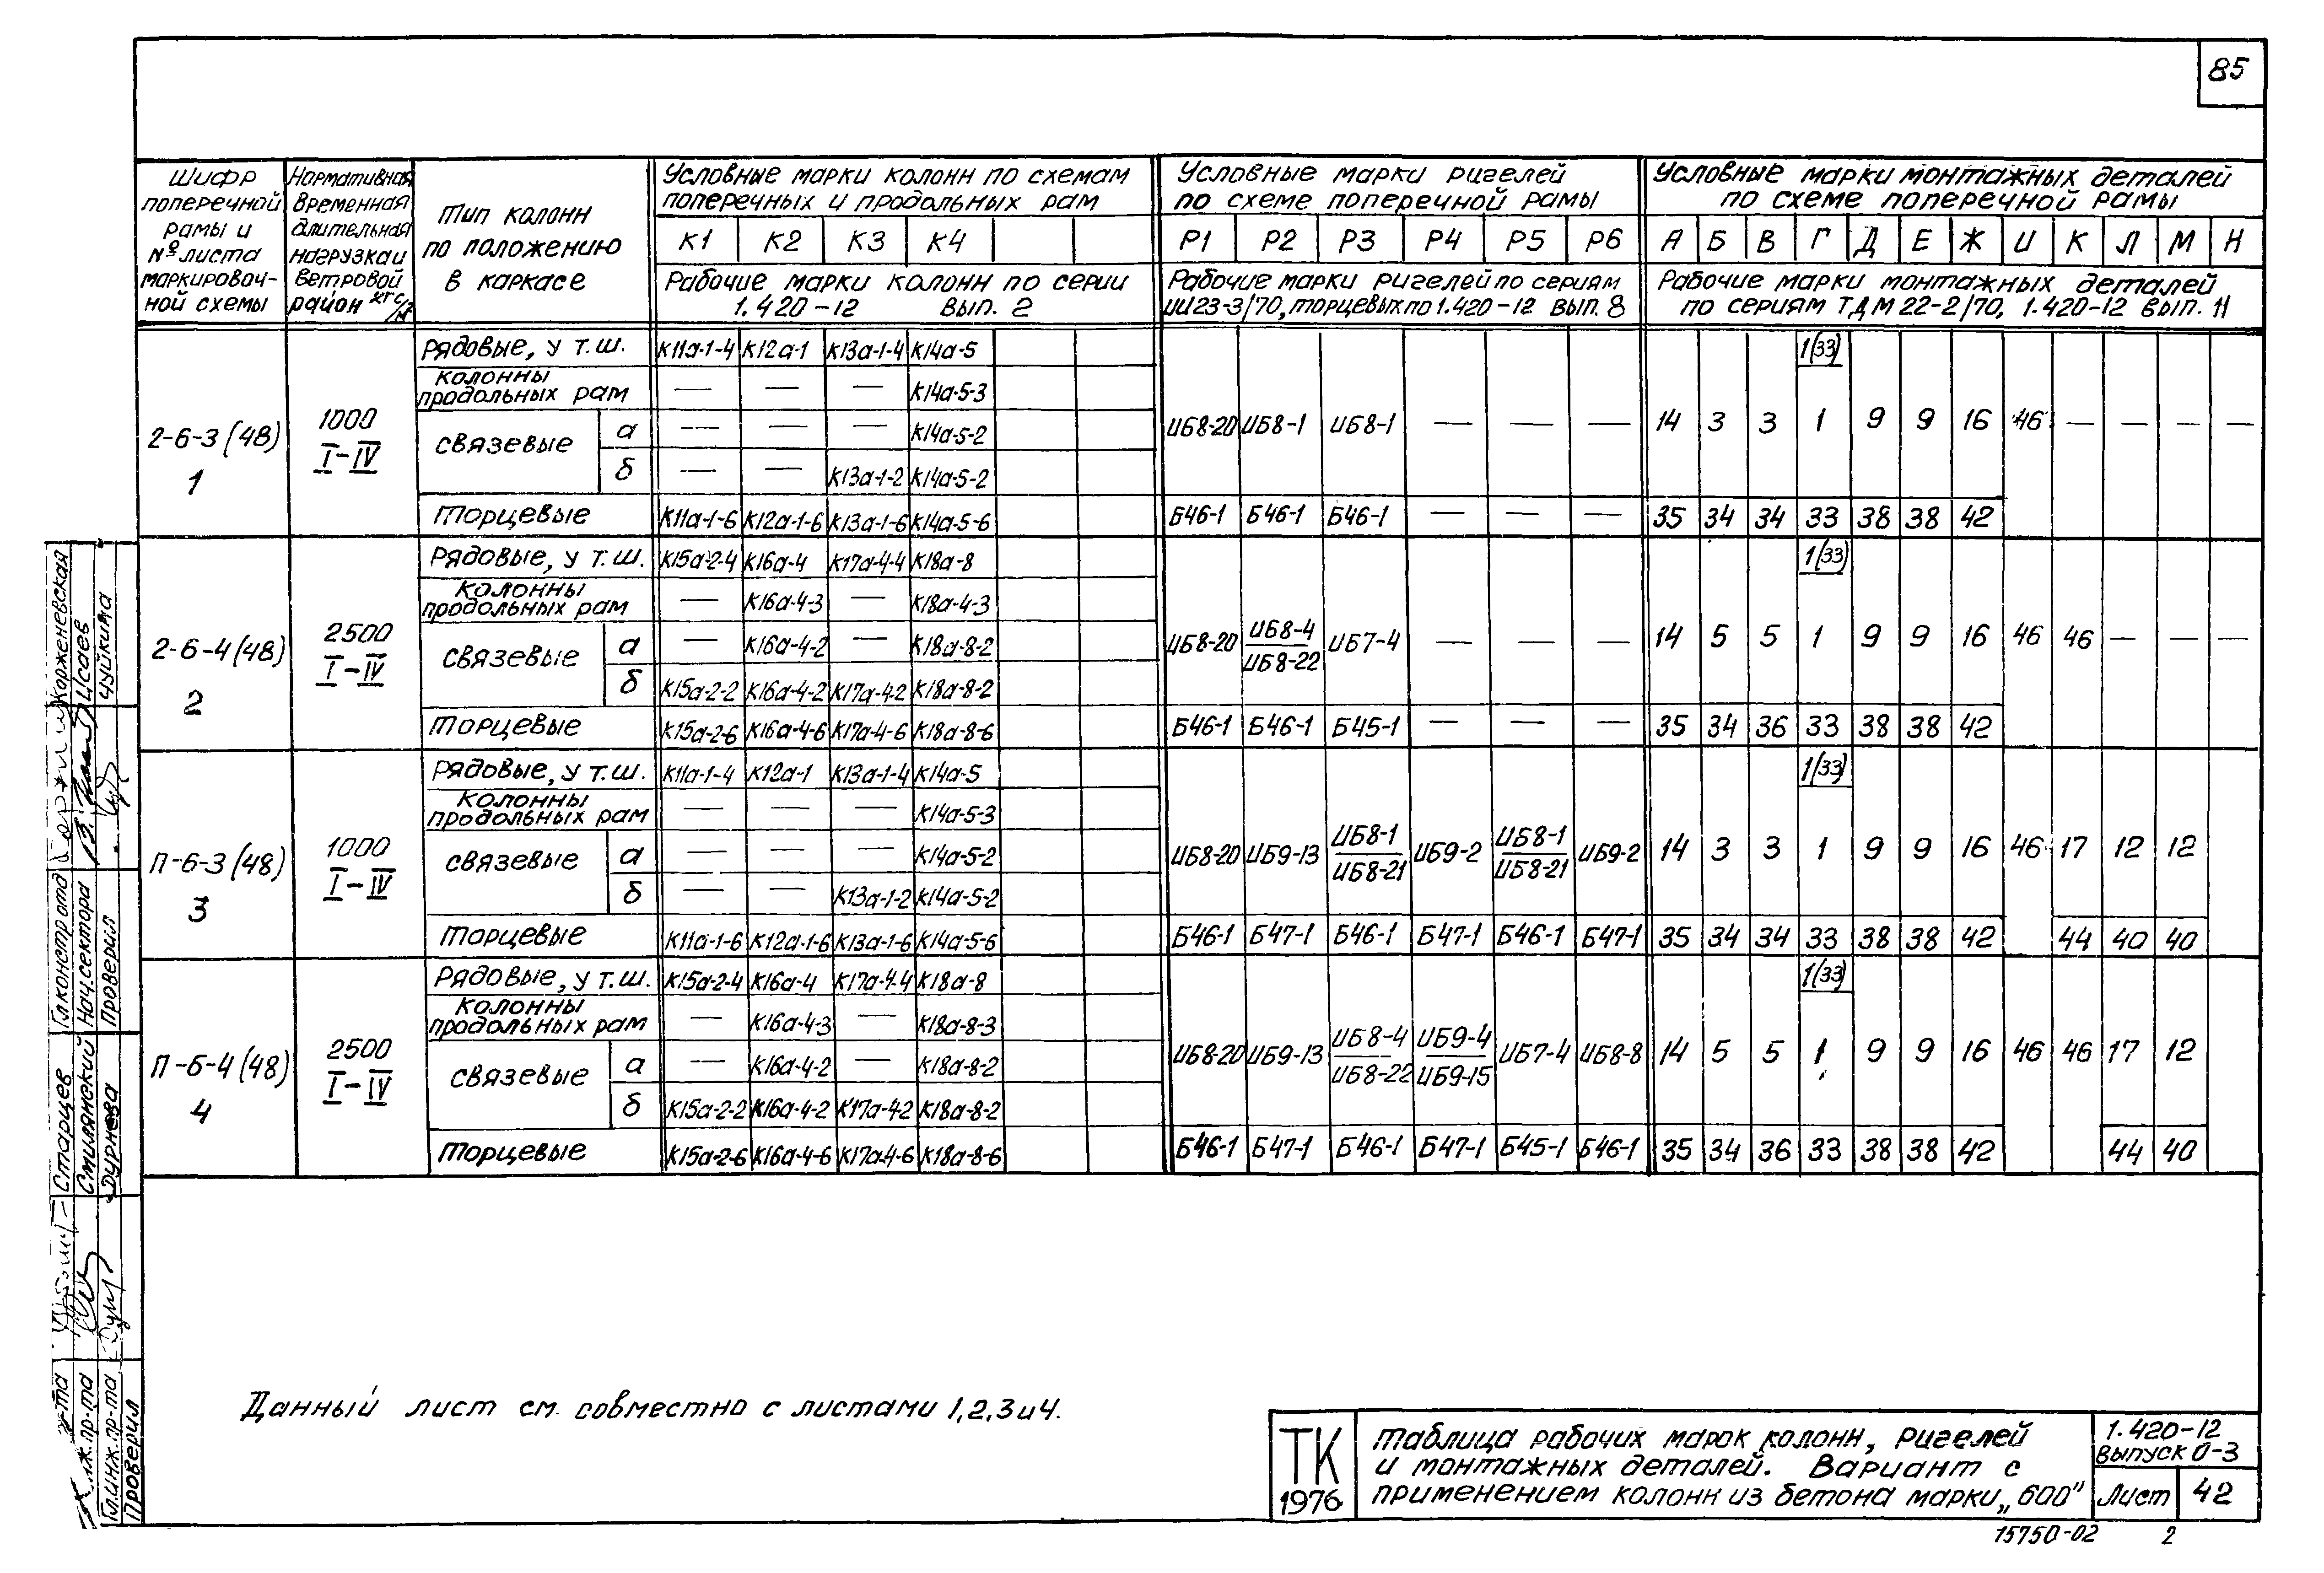 85
Шифр поперечной рамы и № листа маркировочной схемы
Нормативная временная длительная нагрузка и ветровой район кгс/м²
Тип колонн по положению в каркасе
Условные марки колонн по схемам поперечных и продольных рам
Условные марки ригелей по схеме поперечной рамы
Условные марки монтажных деталей по схеме поперечной рамы
К1 К2 К3 К4 Р1 Р2 Р3 Р4 Р5 Р6 А Б В Г Д Е Ж И К Л М Н
Рабочие марки колонн по серии 1.420-12 вып. 2
Рабочие марки ригелей по сериям ИИ23-3/70, торцевых по 1.420-12 вып. 8
Рабочие марки монтажных деталей по сериям ТДМ 22-2/70, 1.420-12 вып. 11
2-6-3 (48) 1
1000 I-IV
рядовые, у т.ш. К11а-1-4 К12а-1 К13а-1-4 К14а-5 1(33)
колонны продольных рам — — — К14а-5-3
связевые а — — — К14а-5-2
б — — К13а-1-2 К14а-5-2
ИБ8-20 ИБ8-1 ИБ8-1 — — — 14 3 3 1 9 9 16 46 — — — —
торцевые К11а-1-6 К12а-1-6 К13а-1-6 К14а-5-6 Б46-1 Б46-1 Б46-1 — — — 35 34 34 33 38 38 42
2-6-4 (48) 2
2500 I-IV
рядовые, у т.ш. К15а-2-4 К16а-4 К17а-4-4 К18а-8 1(33)
колонны продольных рам — К16а-4-3 — К18а-4-3
связевые а — К16а-4-2 — К18а-8-2
б К15а-2-2 К16а-4-2 К17а-4-2 К18а-8-2
ИБ8-20 ИБ8-4 / ИБ8-22 ИБ7-4 — — — 14 5 5 1 9 9 16 46 46 — — —
торцевые К15а-2-6 К16а-4-6 К17а-4-6 К18а-8-6 Б46-1 Б46-1 Б45-1 — — — 35 34 36 33 38 38 42
П-6-3 (48) 3
1000 I-IV
рядовые, у т.ш. К11а-1-4 К12а-1 К13а-1-4 К14а-5 1(33)
колонны продольных рам — — — К14а-5-3
связевые а — — — К14а-5-2
б — — К13а-1-2 К14а-5-2
ИБ8-20 ИБ9-13 ИБ8-1 / ИБ8-21 ИБ9-2 ИБ8-1 / ИБ8-21 ИБ9-2 14 3 3 1 9 9 16 46 17 12 12
торцевые К11а-1-6 К12а-1-6 К13а-1-6 К14а-5-6 Б46-1 Б47-1 Б46-1 Б47-1 Б46-1 Б47-1 35 34 34 33 38 38 42 44 40 40
П-6-4 (48) 4
2500 I-IV
рядовые, у т.ш. К15а-2-4 К16а-4 К17а-4-4 К18а-8 1(33)
колонны продольных рам — К16а-4-3 — К18а-8-3
связевые а — К16а-4-2 — К18а-8-2
б К15а-2-2 К16а-4-2 К17а-4-2 К18а-8-2
ИБ8-20 ИБ9-13 ИБ8-4 / ИБ8-22 ИБ9-4 / ИБ9-15 ИБ7-4 ИБ8-8 14 5 5 1 9 9 16 46 46 17 12
торцевые К15а-2-6 К16а-4-6 К17а-4-6 К18а-8-6 Б46-1 Б47-1 Б46-1 Б47-1 Б45-1 Б46-1 35 34 36 33 38 38 42 44 40
Данный лист см. совместно с листами 1, 2, 3 и 4.
ТК 1976
Таблица рабочих марок колонн, ригелей
и монтажных деталей. Вариант с
применением колонн из бетона марки „600"
1.420-12
Выпуск 0-3
Лист 42
15750-02 2
Гл.констр.отд Корженевская
Нач.сектора Исаев
Проверил Чуйкина
Старцев
Смилянский
Гл.инж.пр-та Дурнева
Проверил